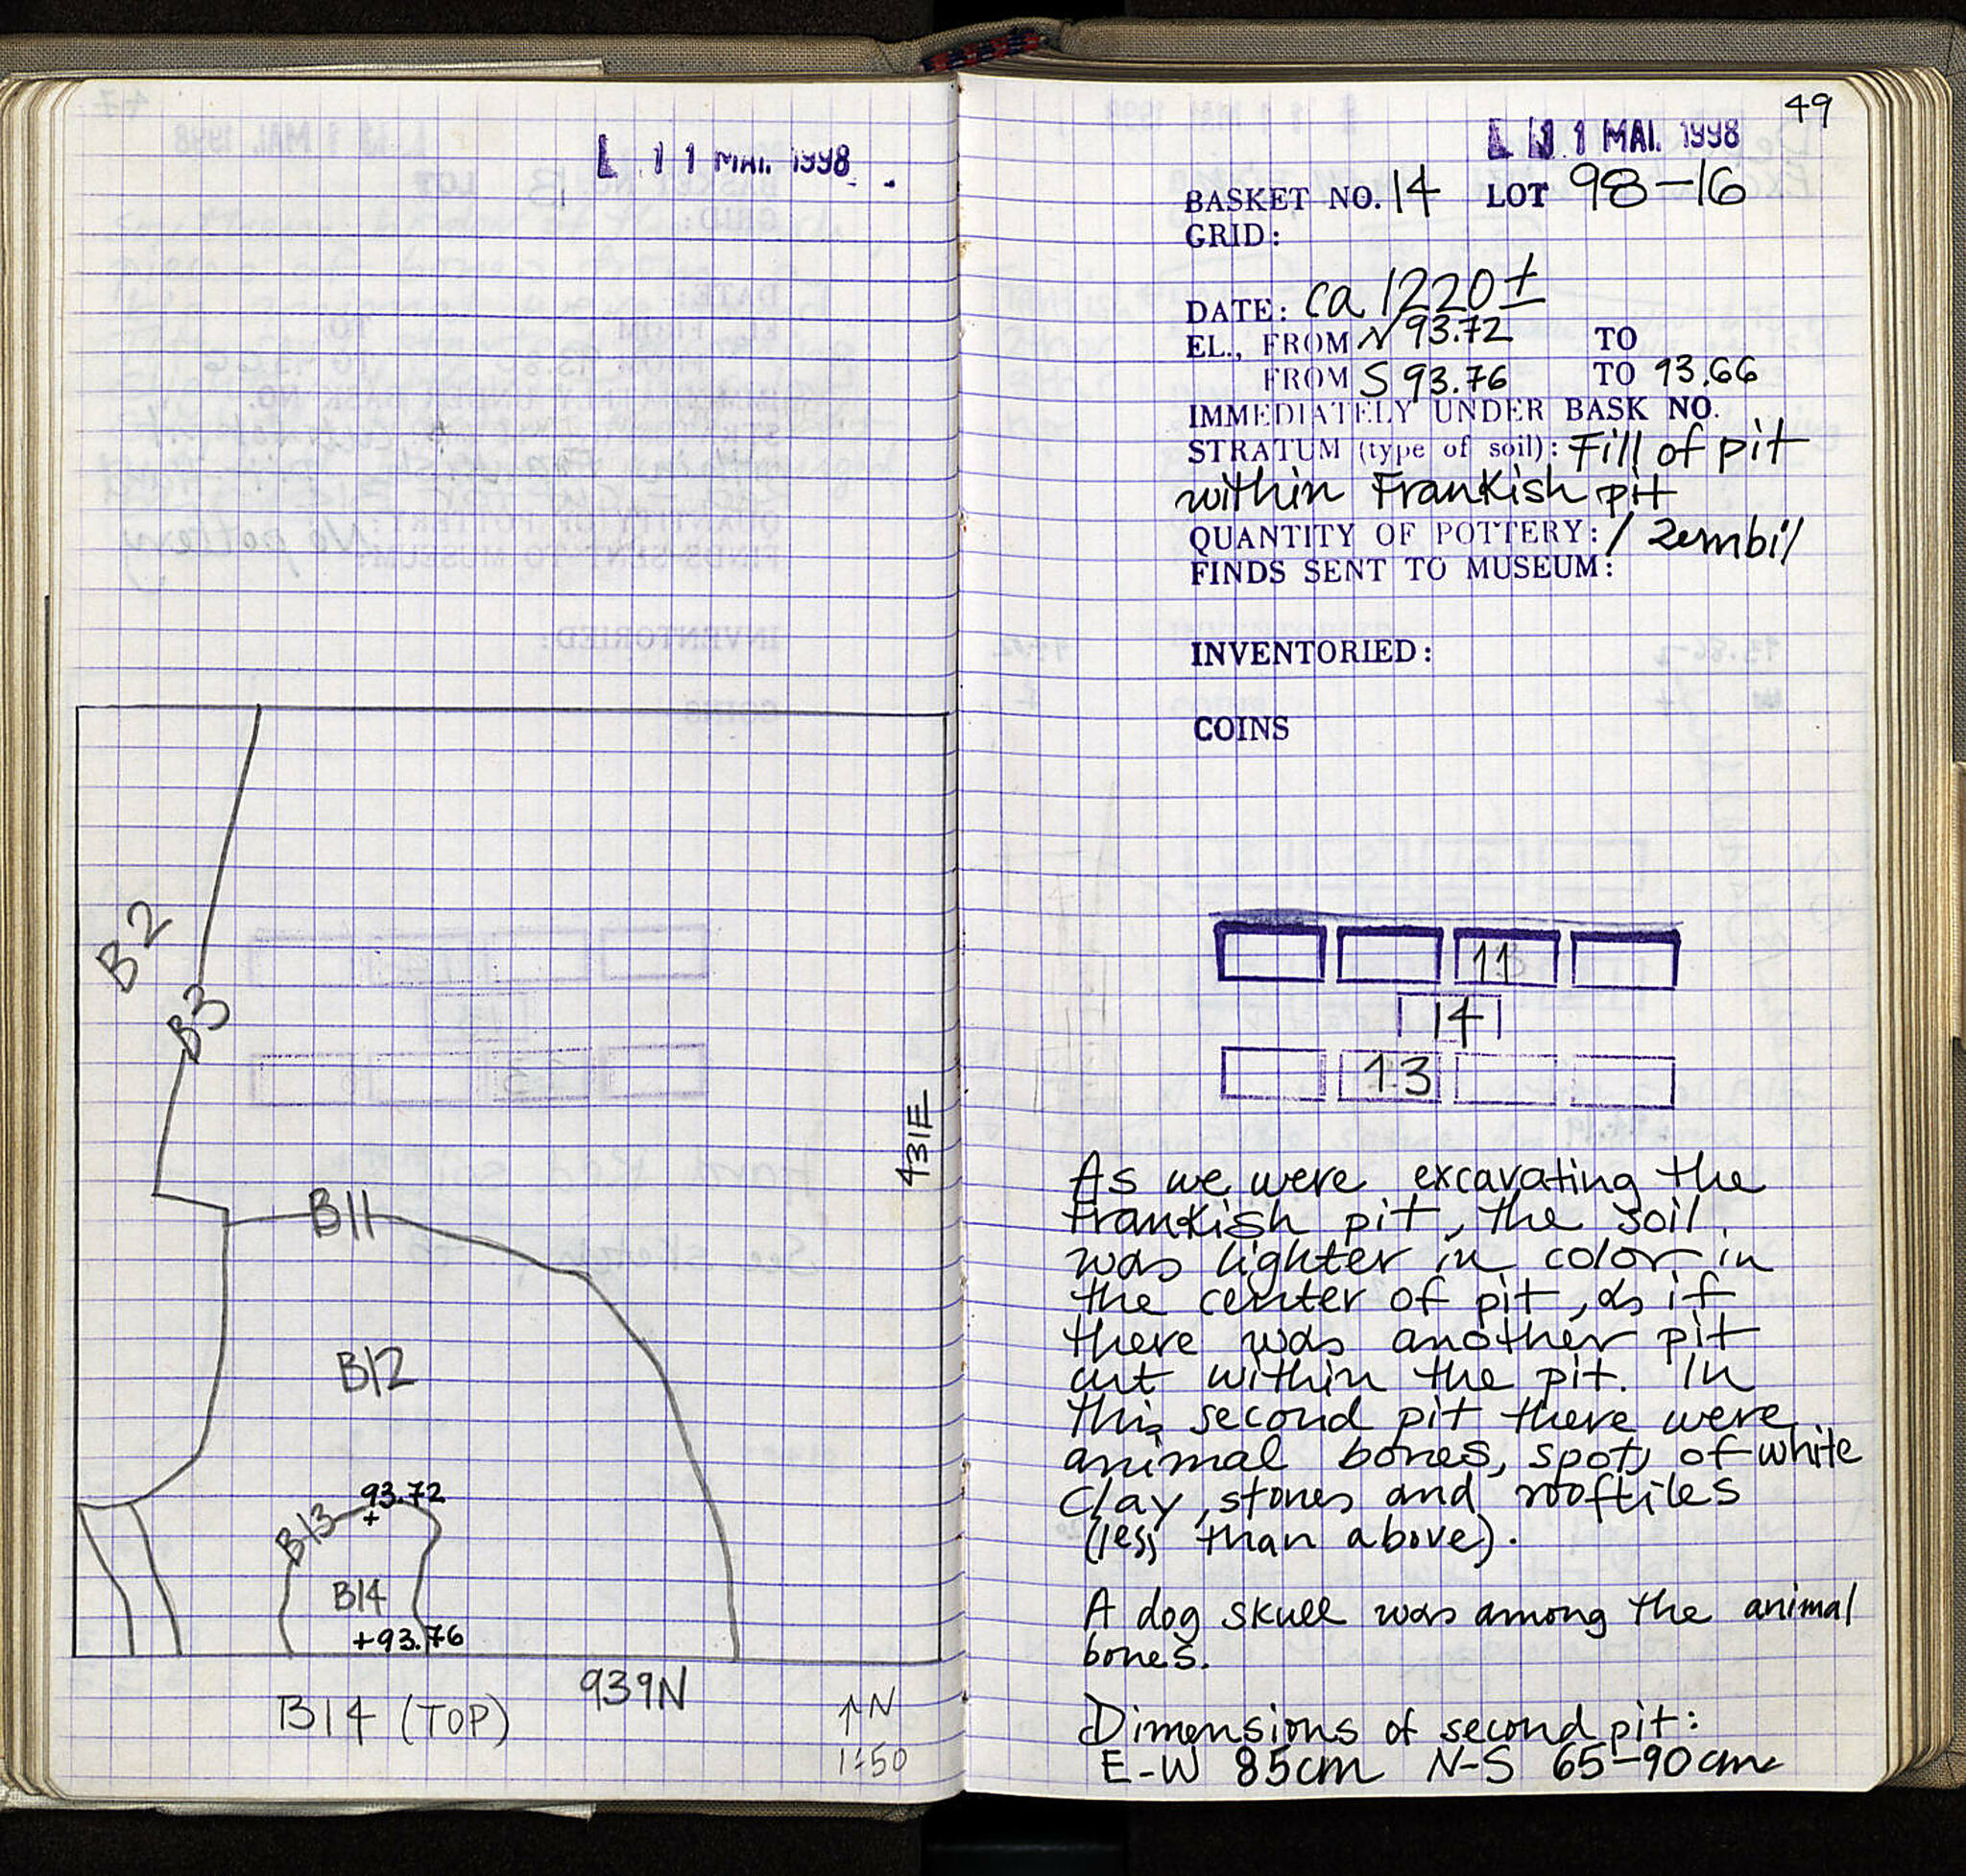 L 11 MAI. 1998
B2
B3
431E
B11
B12
93.72
B13
B14
+93.76
939N
B14 (TOP)
↑N
1:50
49
11 MAI. 1998
BASKET NO. 14 LOT 98-16
GRID:
DATE: ca 1220±
EL., FROM N 93.72 TO
FROM S 93.76 TO 93.66
IMMEDIATELY UNDER BASK NO.
STRATUM (type of soil): Fill of pit
within Frankish pit
QUANTITY OF POTTERY: 1 zembil
FINDS SENT TO MUSEUM:
INVENTORIED:
COINS
11
14
13
As we were excavating the
Frankish pit, the soil
was lighter in color in
the center of pit, as if
there was another pit
cut within the pit. In
this second pit there were
animal bones, spots of white
clay, stones and rooftiles
(less than above).
A dog skull was among the animal
bones.
Dimensions of second pit:
E-W 85cm N-S 65-90cm